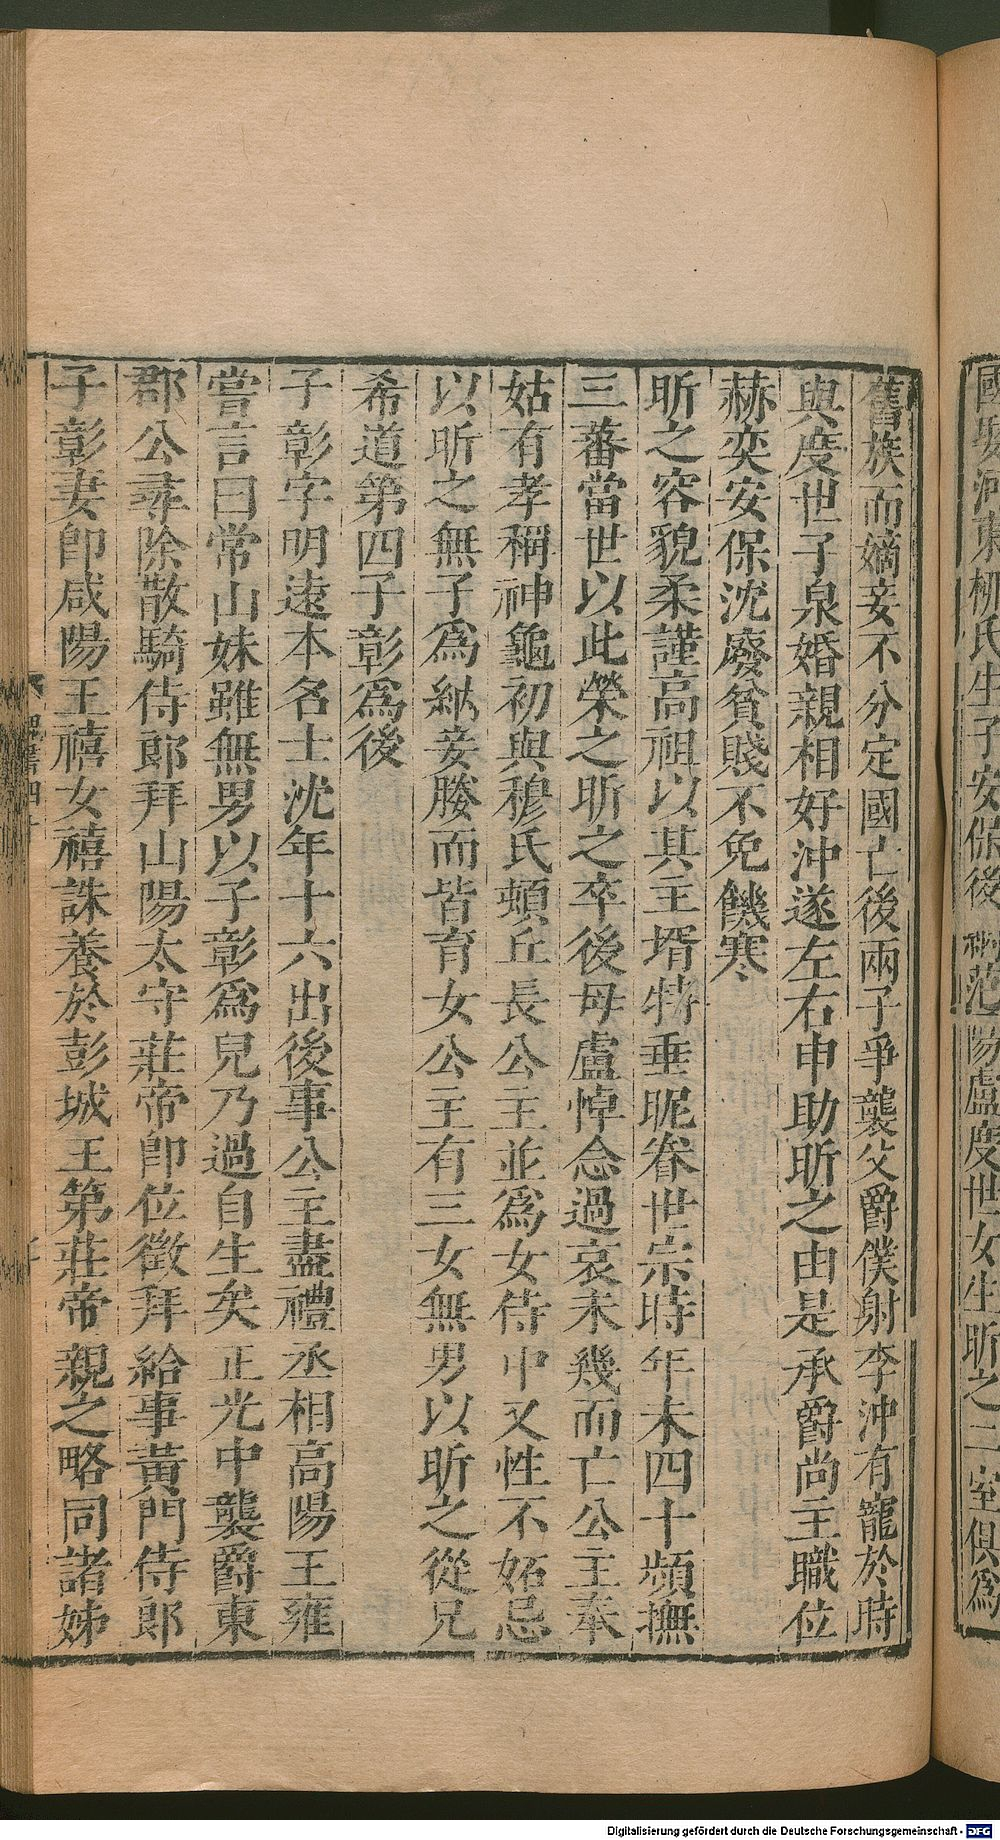 國娶河東柳氏生子安保後納范陽盧度世女生昕之二室俱爲
舊族而嫡妾不分定國亡後兩子爭襲父爵僕射李沖有寵於時
與度世子泉婚親相好沖遂左右申助昕之由是承爵尚主職位
赫奕安保沈廢貧賤不免饑寒
昕之容貌柔謹高祖以其主壻特垂眤眷世宗時年未四十頻撫
三蕃當世以此榮之昕之卒後母盧悼念過哀未幾而亡公主奉
姑有孝稱神龜初與穆氏頓丘長公主並爲女侍中又性不妬忌
以昕之無子爲納妾媵而皆育女公主有三女無男以昕之從兄
希道第四子彰爲後
子彰字明遠本名士沈年十六出後事公主盡禮丞相高陽王雍
嘗言曰常山妹雖無男以子彰爲兒乃過自生矣正光中襲爵東
郡公尋除散騎侍郎拜山陽太守莊帝卽位徵拜給事黃門侍郎
子彰妻卽咸陽王禧女禧誅養於彭城王第莊帝親之略同諸姊
魏書四十
Digitalisierung gefördert durch die Deutsche Forschungsgemeinschaft - DFG